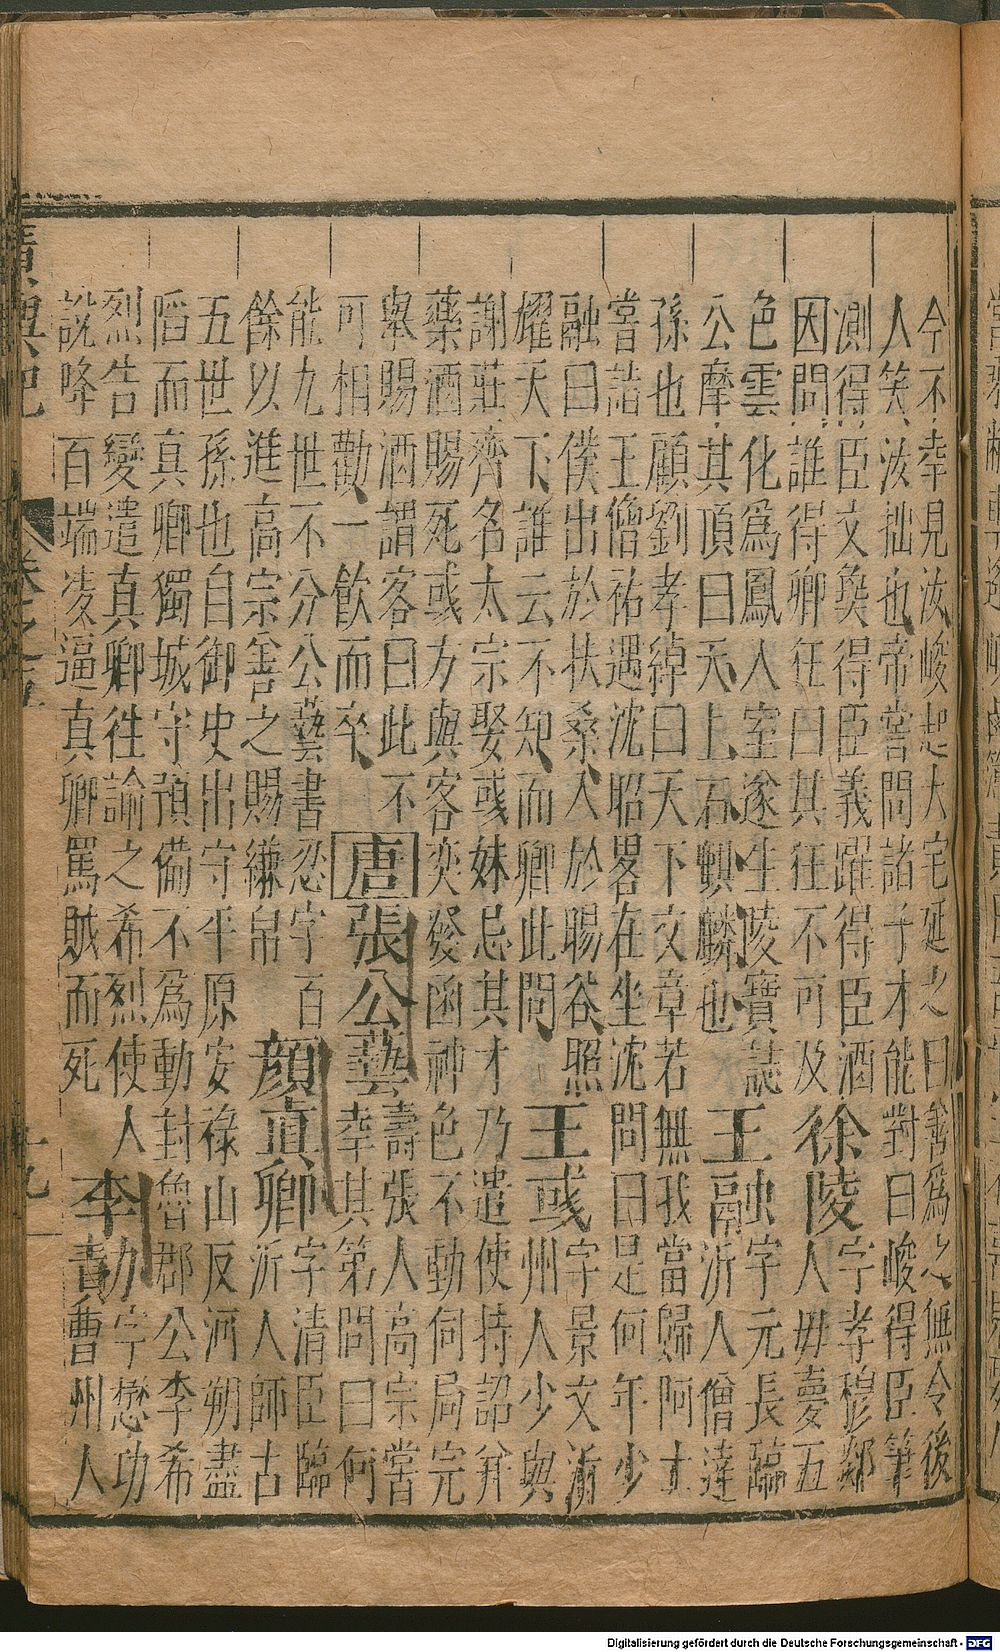 今不幸見汝峻起大宅延之曰善爲之無令後
人笑汝拙也帝嘗問諸子才能對曰峻得臣筆
測得臣文㚟得臣義躍得臣酒
因問誰得卿狂曰其狂不可及
徐陵
字孝穆郯
人毋夢五
色雲化爲鳳入室遂生陵寶誌
公摩其頂曰天上石麒麟也
王融
字元長臨
沂人僧達
孫也顧劉孝綽曰天下文章若無我當歸阿士
嘗詣王僧祐遇沈昭畧在坐沈問曰是何年少
融曰僕出於扶桑入於賜谷照
耀天下誰云不知而卿此問
王彧
字景文
州人少與
謝莊齊名太宗娶彧妹忌其才乃遣使持詔并
藥酒賜死彧方與客奕發函神色不動伺局完
舉賜酒謂客曰此不
可相勸一飲而卒
唐張公藝
壽張人高宗嘗
幸其第問曰何
能九世不分公藝書忍字百
餘以進高宗善之賜縑帛
顏真卿
字清臣臨
沂人師古
五世孫也自御史出守平原安祿山反河朔盡
䧟而真卿獨城守預備不爲動封魯郡公李希
烈告變遣真卿徃諭之希烈使人
說降百端凌逼真卿罵賊而死
李勣
字懋功
曹州人
廣輿記 卷之五 十九
Digitalisierung gefördert durch die Deutsche Forschungsgemeinschaft - DFG